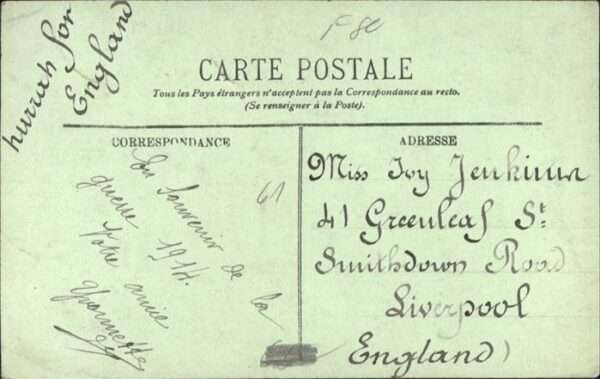 hurrah for
England
F 80
CARTE POSTALE
Tous les Pays étrangers n'acceptent pas la Correspondance au recto.
(Se renseigner à la Poste).
CORRESPONDANCE
En Souvenir de la
guerre 1914.
Votre amie
Yvonnette
61
ADRESSE
Miss Ivy Jenkins
41 Greenleaf St.
Smithdown Road
Liverpool
England)